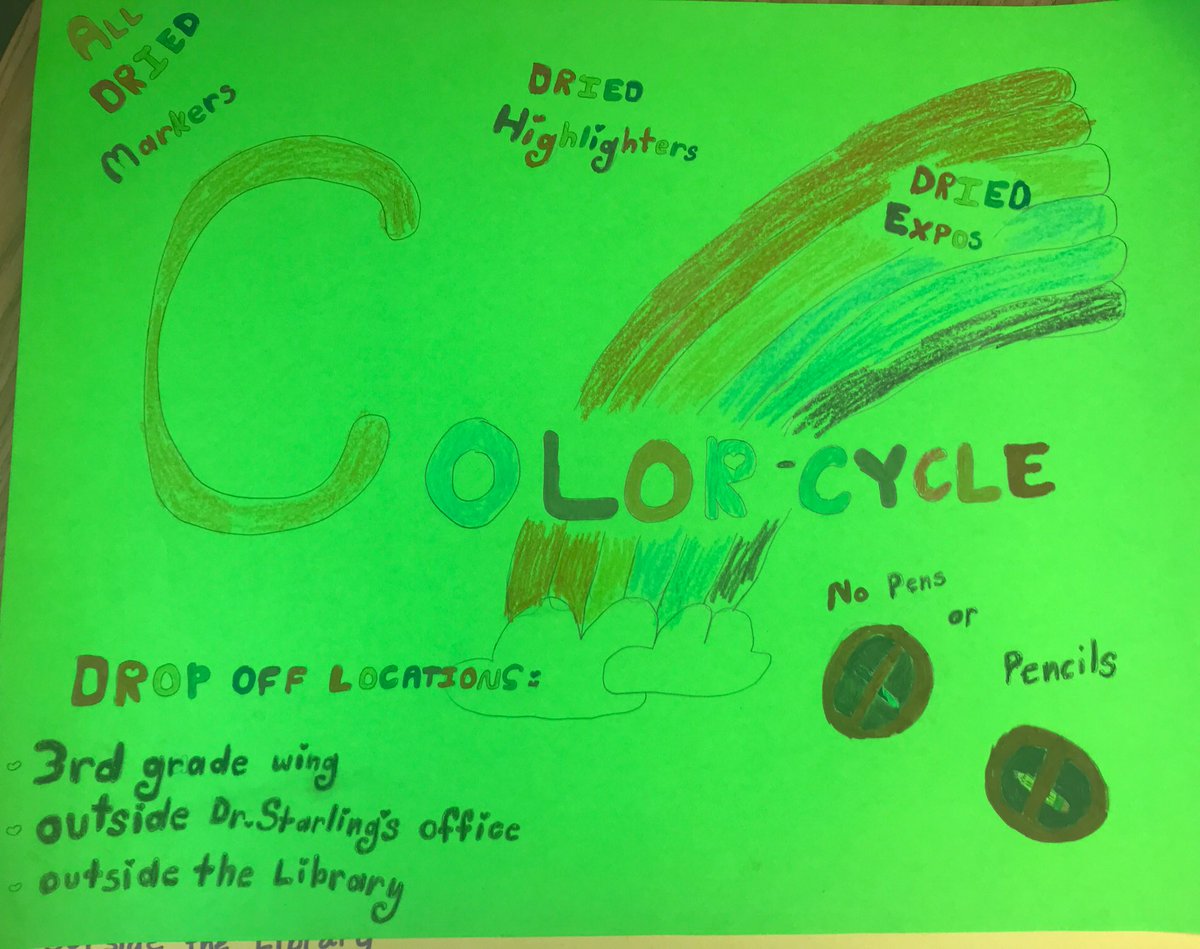 ALL
DRIED
Markers
DRIED
Highlighters
DRIED
EXPOS
COLOR-CYCLE
No Pens
or
Pencils
DROP OFF LOCATIONS:
3rd grade wing
outside Dr. Starling's office
outside the Library
outside the Library